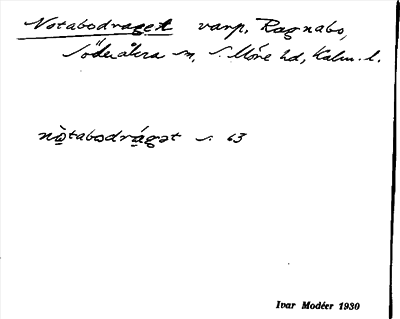 Notabodraget varp, Ragnabo,
Söderåkra sn, S. Möre hd, Kalm. l.
nò̱tabodrá̱gət s. 63
Ivar Modéer 1930